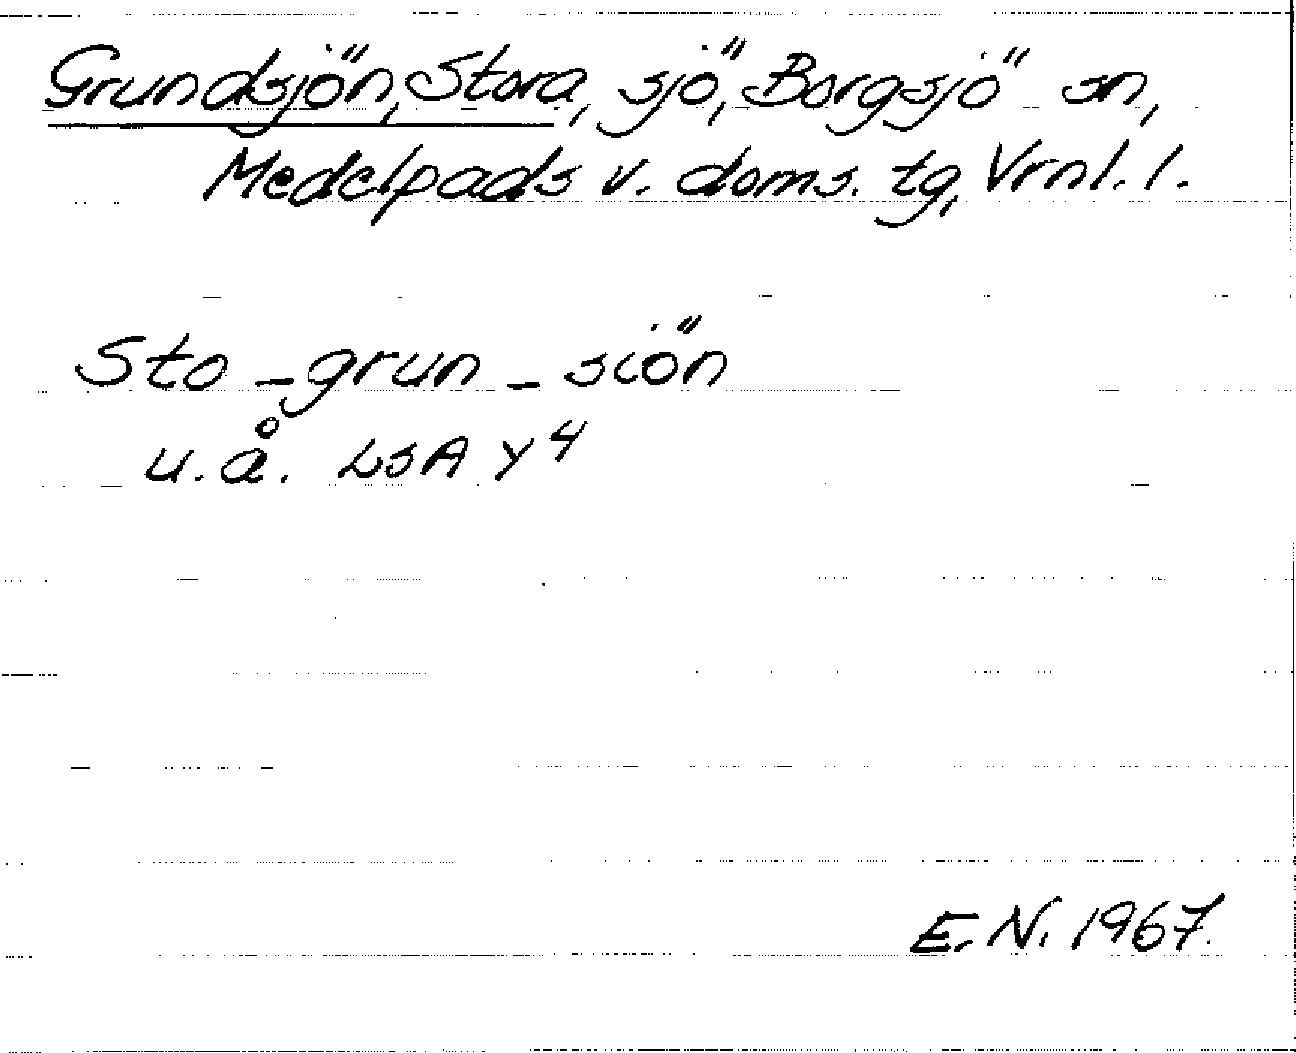 Grundsjön, Stora, sjö, Borgsjö sn,
Medelpads v. doms. tg, Vrnl. l.
Sto-grun-siön
u.å. LSA Y4
E.N. 1967.